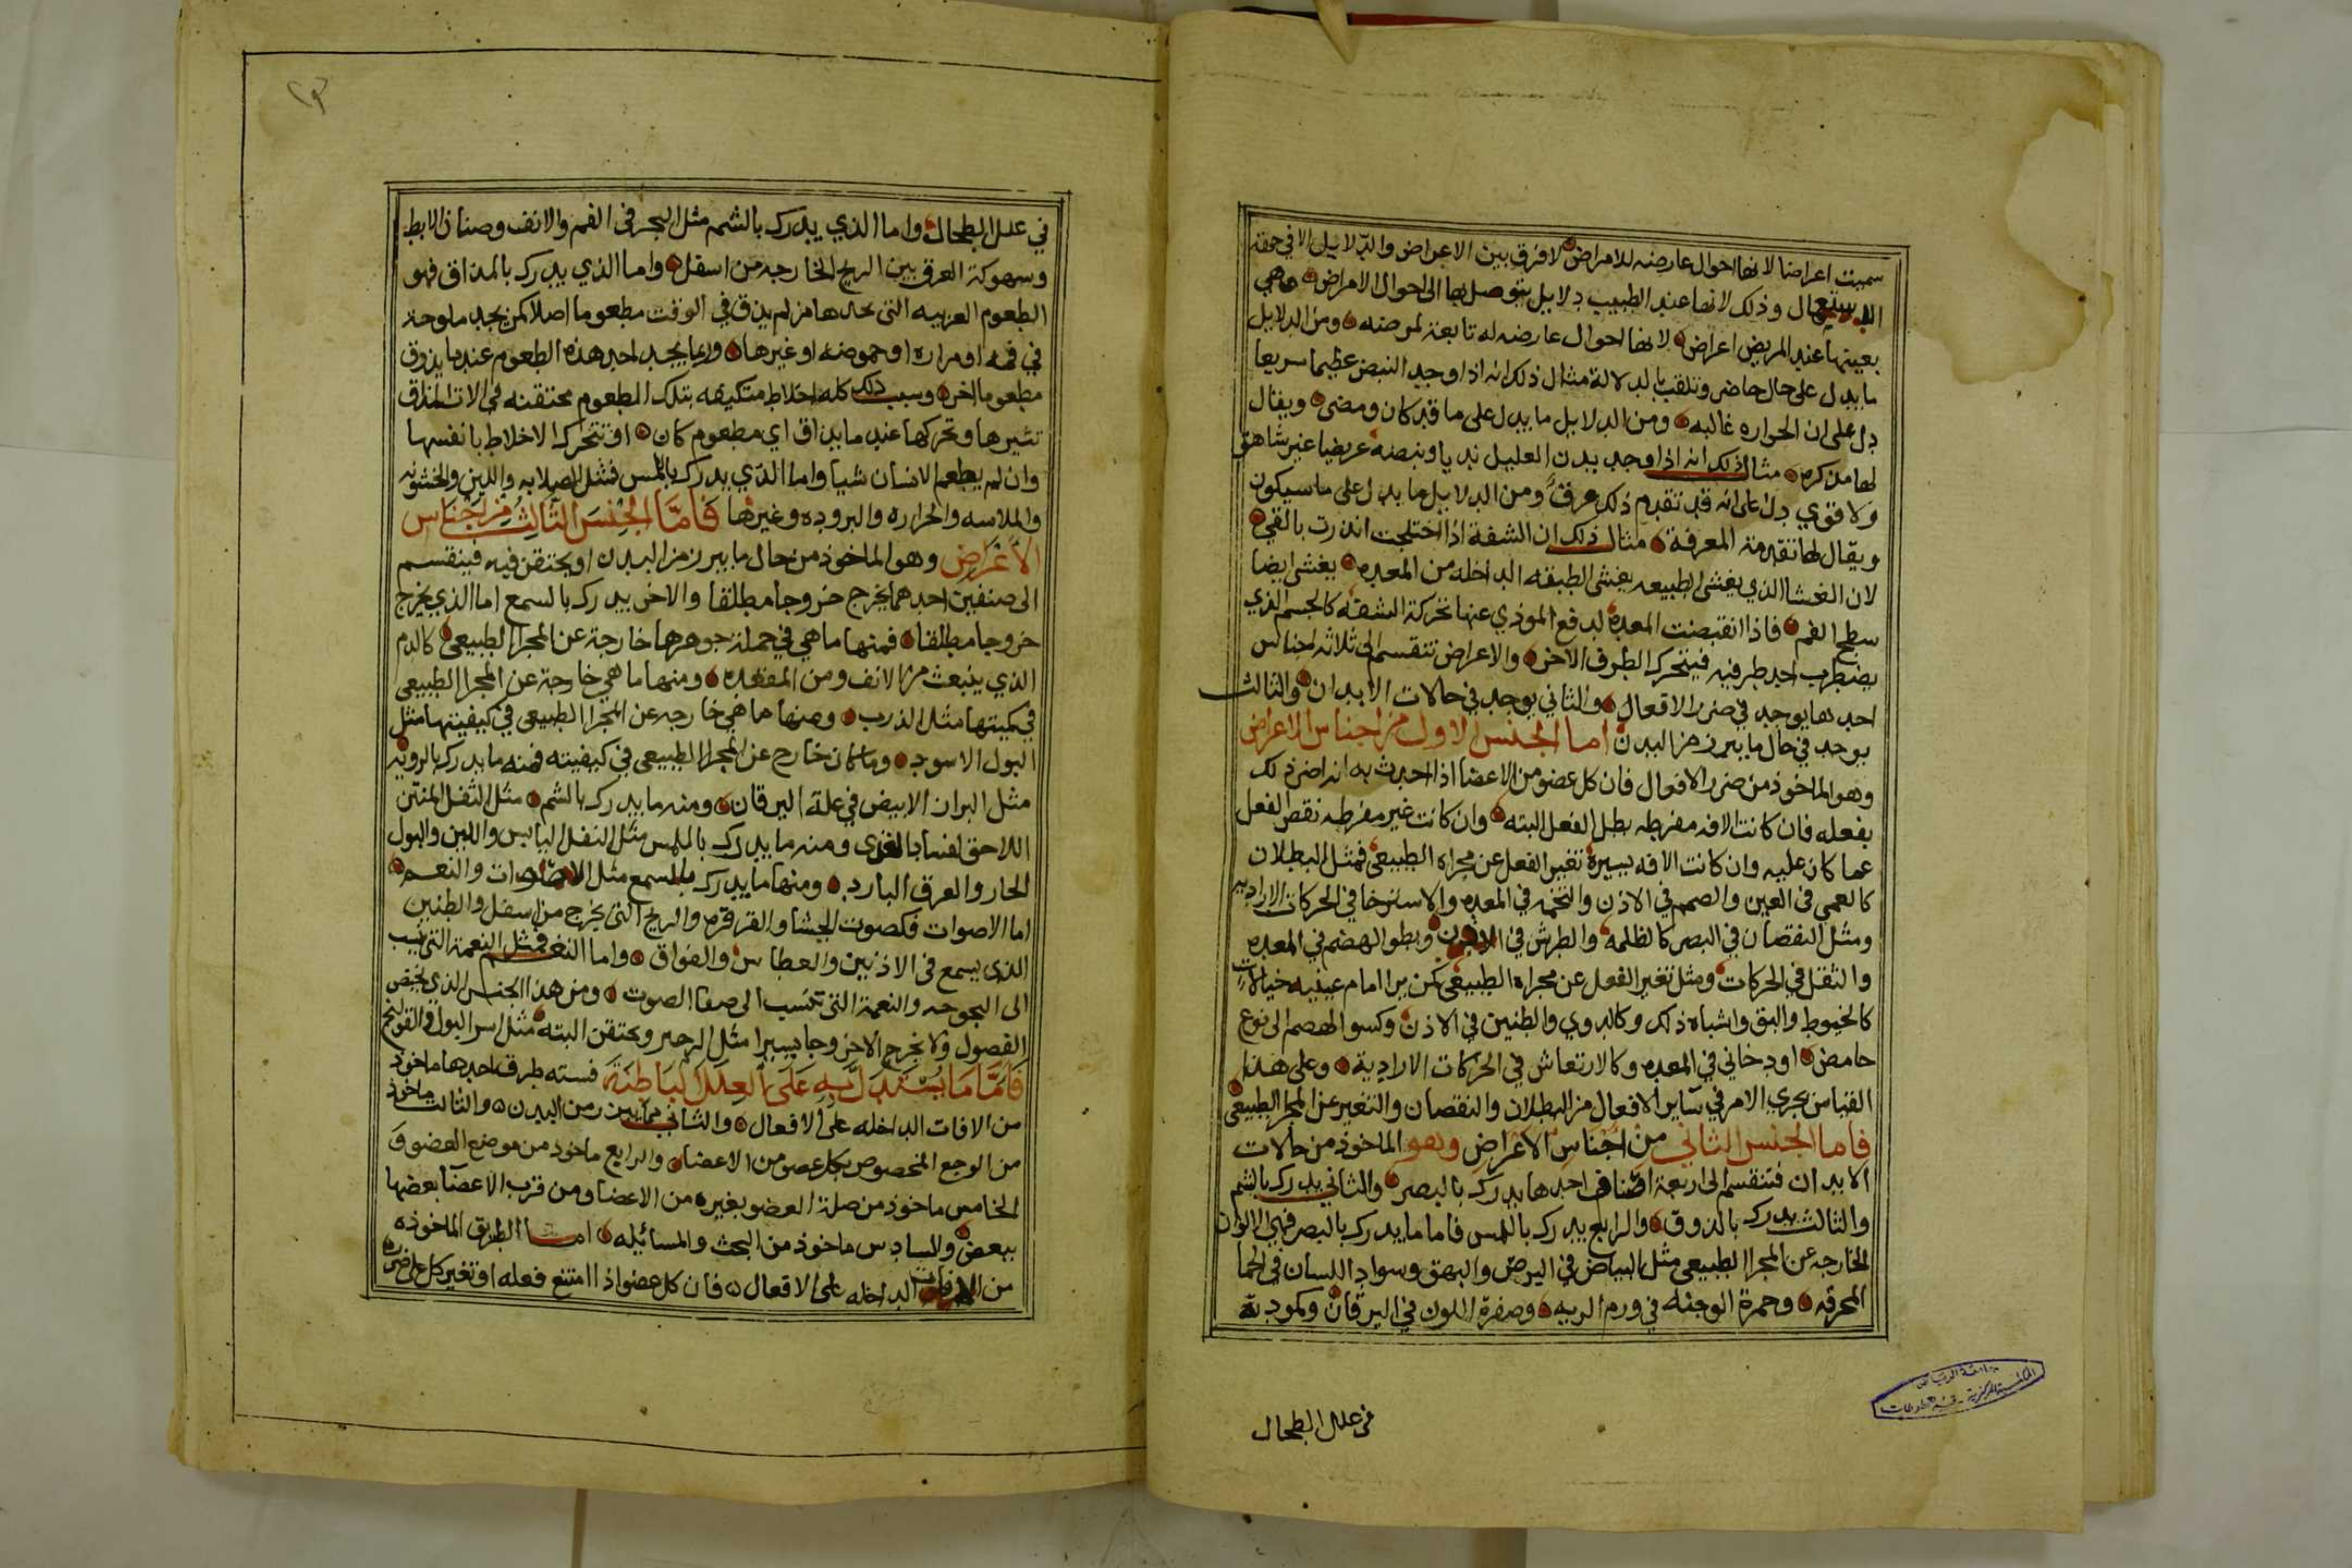 سميت اعراضا لانها احوال عارضه للامراض لا فرق بين الاعراض والدلايل الا في جهة
الاستعمال وذلك لانها عند الطبيب دلايل يتوصل بها الى احوال الامراض وهي
بعينها عند المريض اعراض لانها احوال عارضه له تابعة لمرضه ومن الدلايل
ما يدل على حال حاضر وتلقب بالدلالة مثال ذلك انه اذا وجد النبض عظيما سريعا
دل على ان الحراره غالبه ومن الدلايل ما يدل على ما قد كان ومضى ويقال
لها مذكره مثال ذلك انه اذا وجد بدن العليل نديا ونبضه عريضا غير شاهق
ولا قوي دل على انه قد تقدم ذلك عرق ومن الدلايل ما يدل على ما سيكون
ويقال لها تقدمة المعرفة مثال ذلك ان الشفة اذا اختلجت انذرت بالقي
لان الغشا الذي يغشى الطبيعه يغشى الطبقه الداخله من المعده يغشى ايضا
سطح الفم فاذا انقبضت المعدة لدفع الموذي عنها تحركة الشفه كالجسم الذي
يضطرب احد طرفيه فيتحرك الطرف الاخر والاعراض تنقسم الى ثلاثه اجناس
احدها يوجد في ضرر الافعال والثاني يوجد في حالات الابدان والثالث
يوجد في حال ما يبرز من البدن اما الجنس الاول من اجناس الاعراض
وهو الماخوذ من ضرر الافعال فان كل عضو من الاعضا اذا احدث به اذ اضر ذلك
بفعله فان كانت الافه مفرطه بطل الفعل البته وان كانت غير مفرطه نقص الفعل
عما كان عليه وان كانت الافه يسيرة تغير الفعل عن مجراه الطبيعي فمثل البطلان
كالعمى في العين والصمم في الاذن والتخمه في المعده والاسترخا في الحركات الاراديه
ومثل النقصان في البصر كالظلمه والطرش في الاذن وبطو الهضم في المعده
والثقل في الحركات ومثل تغير الفعل عن مجراه الطبيعي كمن يرا امام عينيه خيالات
كالخيوط والبق واشباه ذلك وكالدوي والطنين في الاذن وكسو الهضم الى نوع
حامض او دخاني في المعده وكالارتعاش في الحركات الارادية وعلى هذا
القياس يجري الامر في ساير الافعال من البطلان والنقصان والتغير عن المجرا الطبيعي
فاما الجنس الثاني من اجناس الاعراض وهو الماخوذ من حالات
الابدان فتنقسم الى اربعة اصناف احدها يدرك بالبصر والثاني يدرك بالشم
والثالث يدرك بالذوق والرابع يدرك باللمس فاما ما يدرك بالبصر فهي الالوان
الخارجه عن المجرا الطبيعي مثل البياض في البرص والبهق وسواد اللسان في الحما
المحرقه وحمرة الوجنه في ورم الريه وصفرة اللون في اليرقان وكمودته
في علل الطحال
في علل الطحال واما الذي يدرك بالشم مثل البخر في الفم والانف وصنان الابط
وسهوكة العرق بين الريح الخارجه من اسفل واما الذي يدرك بالمذاق فهو
الطعوم الغريبه التي يجدها من لم يذق في الوقت مطعوما اصلا كمن يجد ملوحة
في فمه او مراره او حموضه او غيرها وربما يجد احد هذه الطعوم عند ما يذوق
مطعوما اخر وسبب ذلك كله اخلاط متكيفه بتلك الطعوم محتقنه في الات المذاق
تثيرها وتحركها عند ما يذاق اي مطعوم كان او تتحرك الاخلاط بانفسها
وان لم يطعم الانسان شيا واما الذي يدرك باللمس فمثل الصلابه واللين والخشونه
والملاسه والحراره والبروده وغيرها فَأمَّا الجِنْسَ الثَّالِثُ مِنْ اجْنَاس
الأعْرَاض وهو الماخوذ من حال ما يبرز من البدن او يحتقن فيه فينقسم
الى صنفين احدهما يخرج خروجا مطلقا والاخر يدرك بالسمع اما الذي يخرج
خروجا مطلقا فمنها ما هي في جملة جوهرها خارجة عن المجرا الطبيعي كالدم
الذي ينبعث من الانف ومن المقعده ومنها ما هي خارجة عن المجرا الطبيعي
في كميتها مثل الذرب ومنها ما هي خارجه عن المجرا الطبيعي في كيفيتها مثل
البول الاسود وما كان خارج عن المجرا الطبيعي في كيفيته فمنه ما يدرك بالرويه
مثل البراز الابيض في علة اليرقان ومنه ما يدرك بالشم مثل الثفل المنتن
اللاحق لفساد الغذي ومنه ما يدرك بالملمس مثل الثفل اليابس واللين والبول
الحار والعرق البارد ومنها ما يدرك بالسمع مثل الاصوات والنغم
اما الاصوات فكصوت الجشا والقرقره والريح التي يخرج من اسفل والطنين
الذي يسمع في الاذنين والعطاس والفواق واما النغم فمثل النغمة التي تنسب
الى البحوحه والنغمة التي تنسب الى صفا الصوت ومن هذا الجنس الذي يخص
الفصول ولا يخرج الاخروجا يسيرا مثل الزحير ويحتقن البته مثل اسر البول والقولنج
فَأمَّا مَا يُسْتَدَل بِهِ عَلَى العِلَلِ البَاطِنَة فسته طرف احدها ماخوذ
من الافات الداخله على الافعال والثاني مما يبرز من البدن والثالث ماخوذ
من الوجع المخصوص بكل عضو من الاعضا والرابع ماخوذ من موضع العضو و
الخامس ماخوذ من صلة العضو بغيره من الاعضا ومن قرب الاعضا بعضها
ببعض والسادس ماخوذ من البحث والمسائيله اما الطريق الماخوذه
من الافات الداخله على الافعال فان كل عضو اذا امتنع فعله او تغير كل على ضرره
جامعة الرياض
المكتبة المركزية - قسم المخطوطات